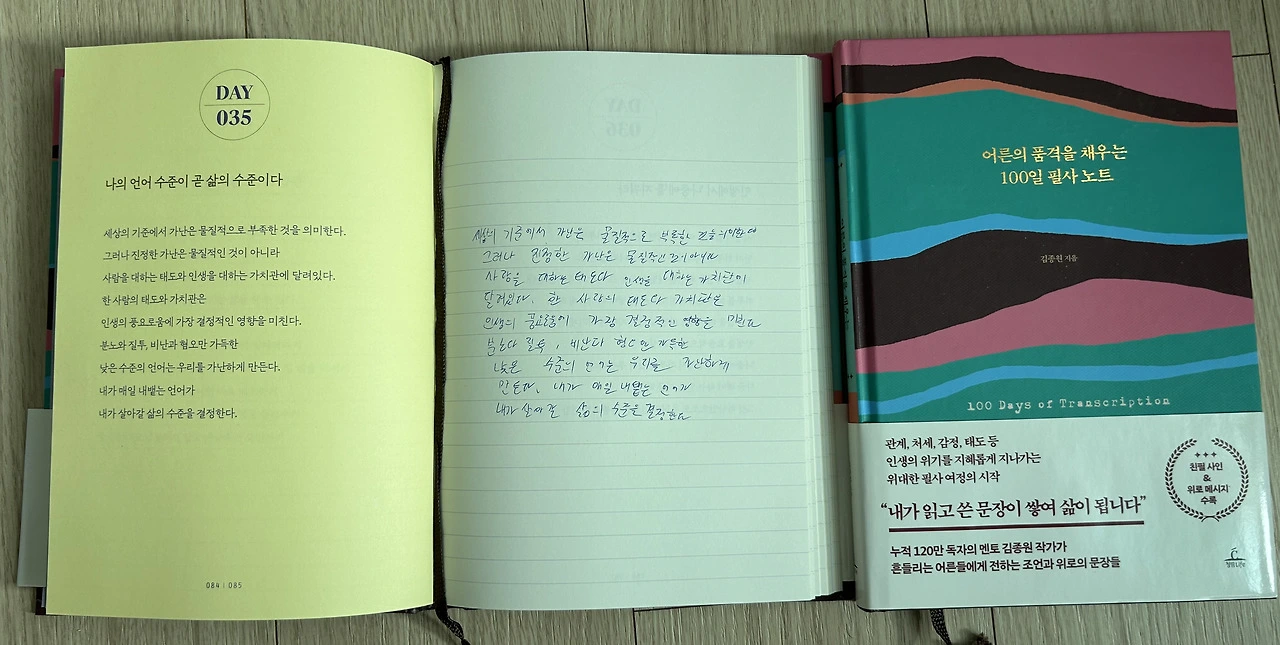 DAY
035
나의 언어 수준이 곧 삶의 수준이다
세상의 기준에서 가난은 물질적으로 부족한 것을 의미한다.
그러나 진정한 가난은 물질적인 것이 아니라
사람을 대하는 태도와 인생을 대하는 가치관에 달려있다.
한 사람의 태도와 가치관은
인생의 풍요로움에 가장 결정적인 영향을 미친다.
분노와 질투, 비난과 혐오만 가득한
낮은 수준의 언어는 우리를 가난하게 만든다.
내가 매일 내뱉는 언어가
내가 살아갈 삶의 수준을 결정한다.
084 | 085
세상의 기준에서 가난은 물질적으로 부족한
그러나 진정한 가난은
사람을 대하는 태도와 인생을 대하는 가치관에
달려있다. 한 사람의 태도와 가치관은
인생의 풍요로움에 가장 결정적인 영향을
분노와 질투, 비난과
낮은 수준의 언어는 우리를
만든다. 내가 매일 내뱉는 언어가
내가 살아갈 삶의 수준을 결정한다
어른의 품격을 채우는
100일 필사 노트
김종원 지음
100 Days of Transcription
관계, 처세, 감정, 태도 등
인생의 위기를 지혜롭게 지나가는
위대한 필사 여정의 시작
“내가 읽고 쓴 문장이 쌓여 삶이 됩니다”
누적 120만 독자의 멘토 김종원 작가가
흔들리는 어른들에게 전하는 조언과 위로의 문장들
친필 사인
&
위로 메시지
수록